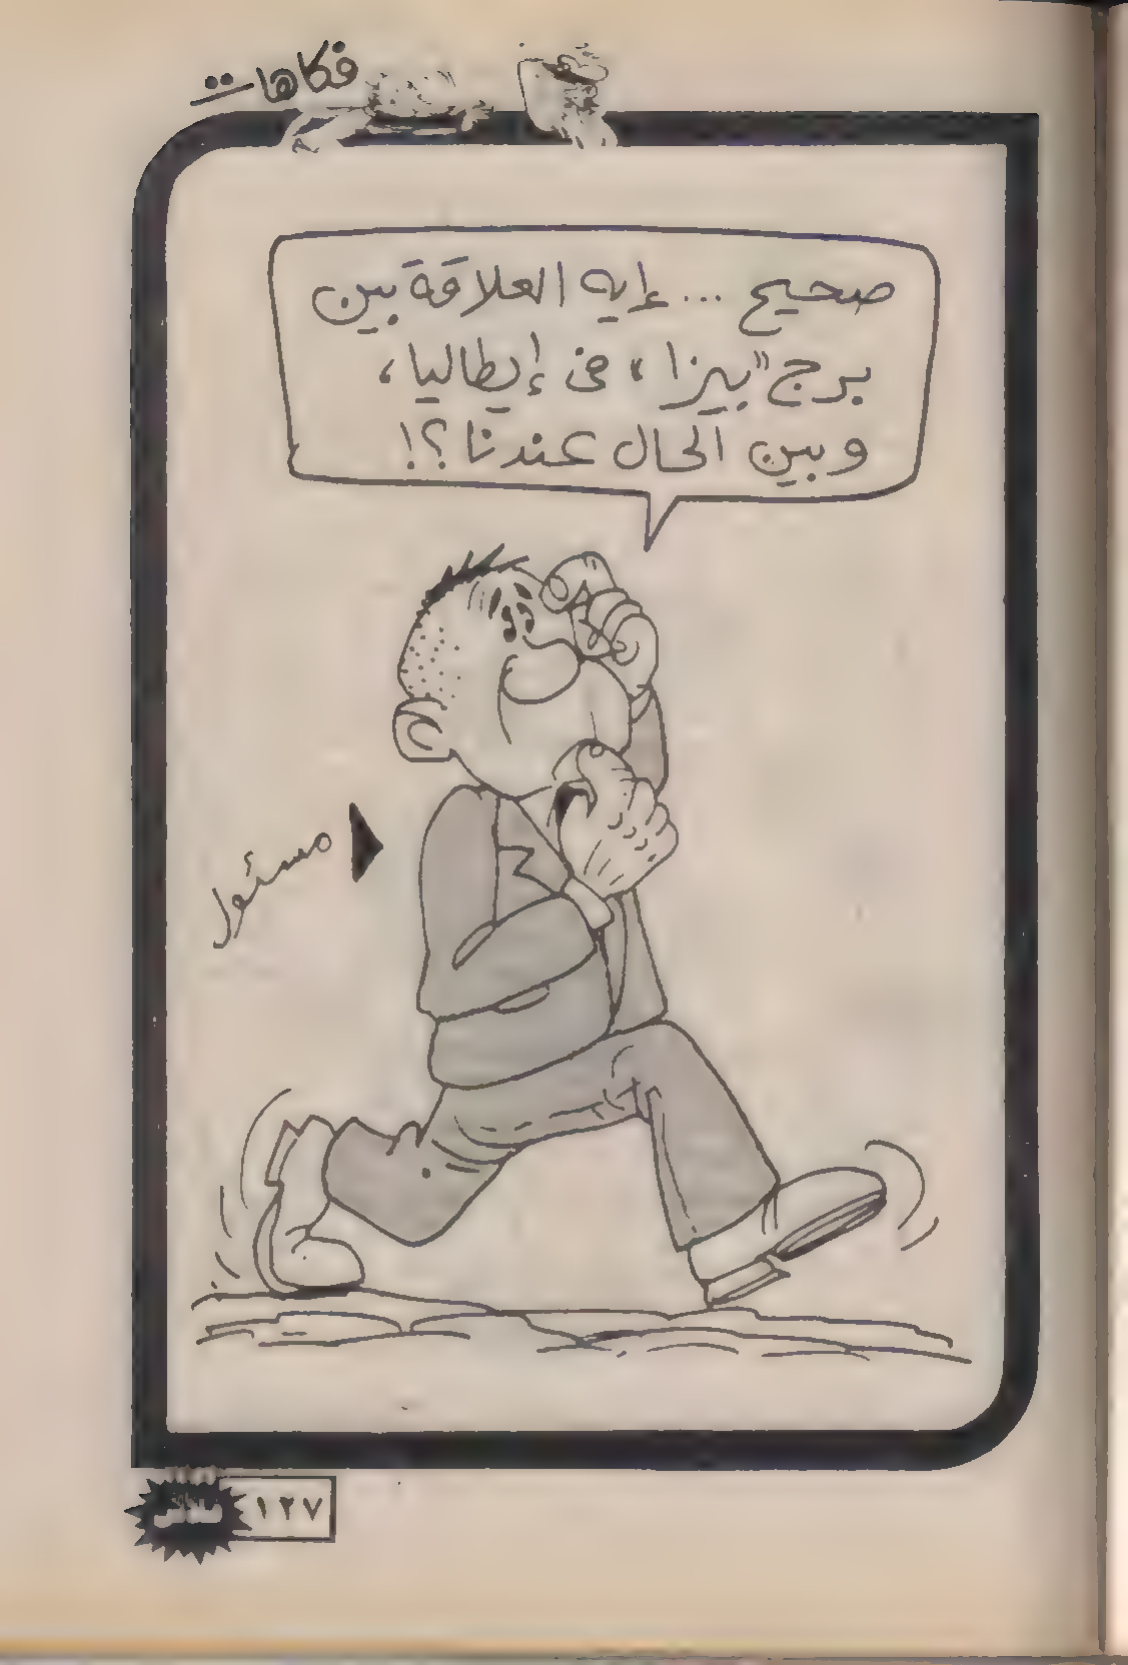 فكاهات
صحيح ... إيه العلاقة بين
برج "بيزا" فى إيطاليا،
وبين الحال عندنا؟!
مسئول
١٢٧